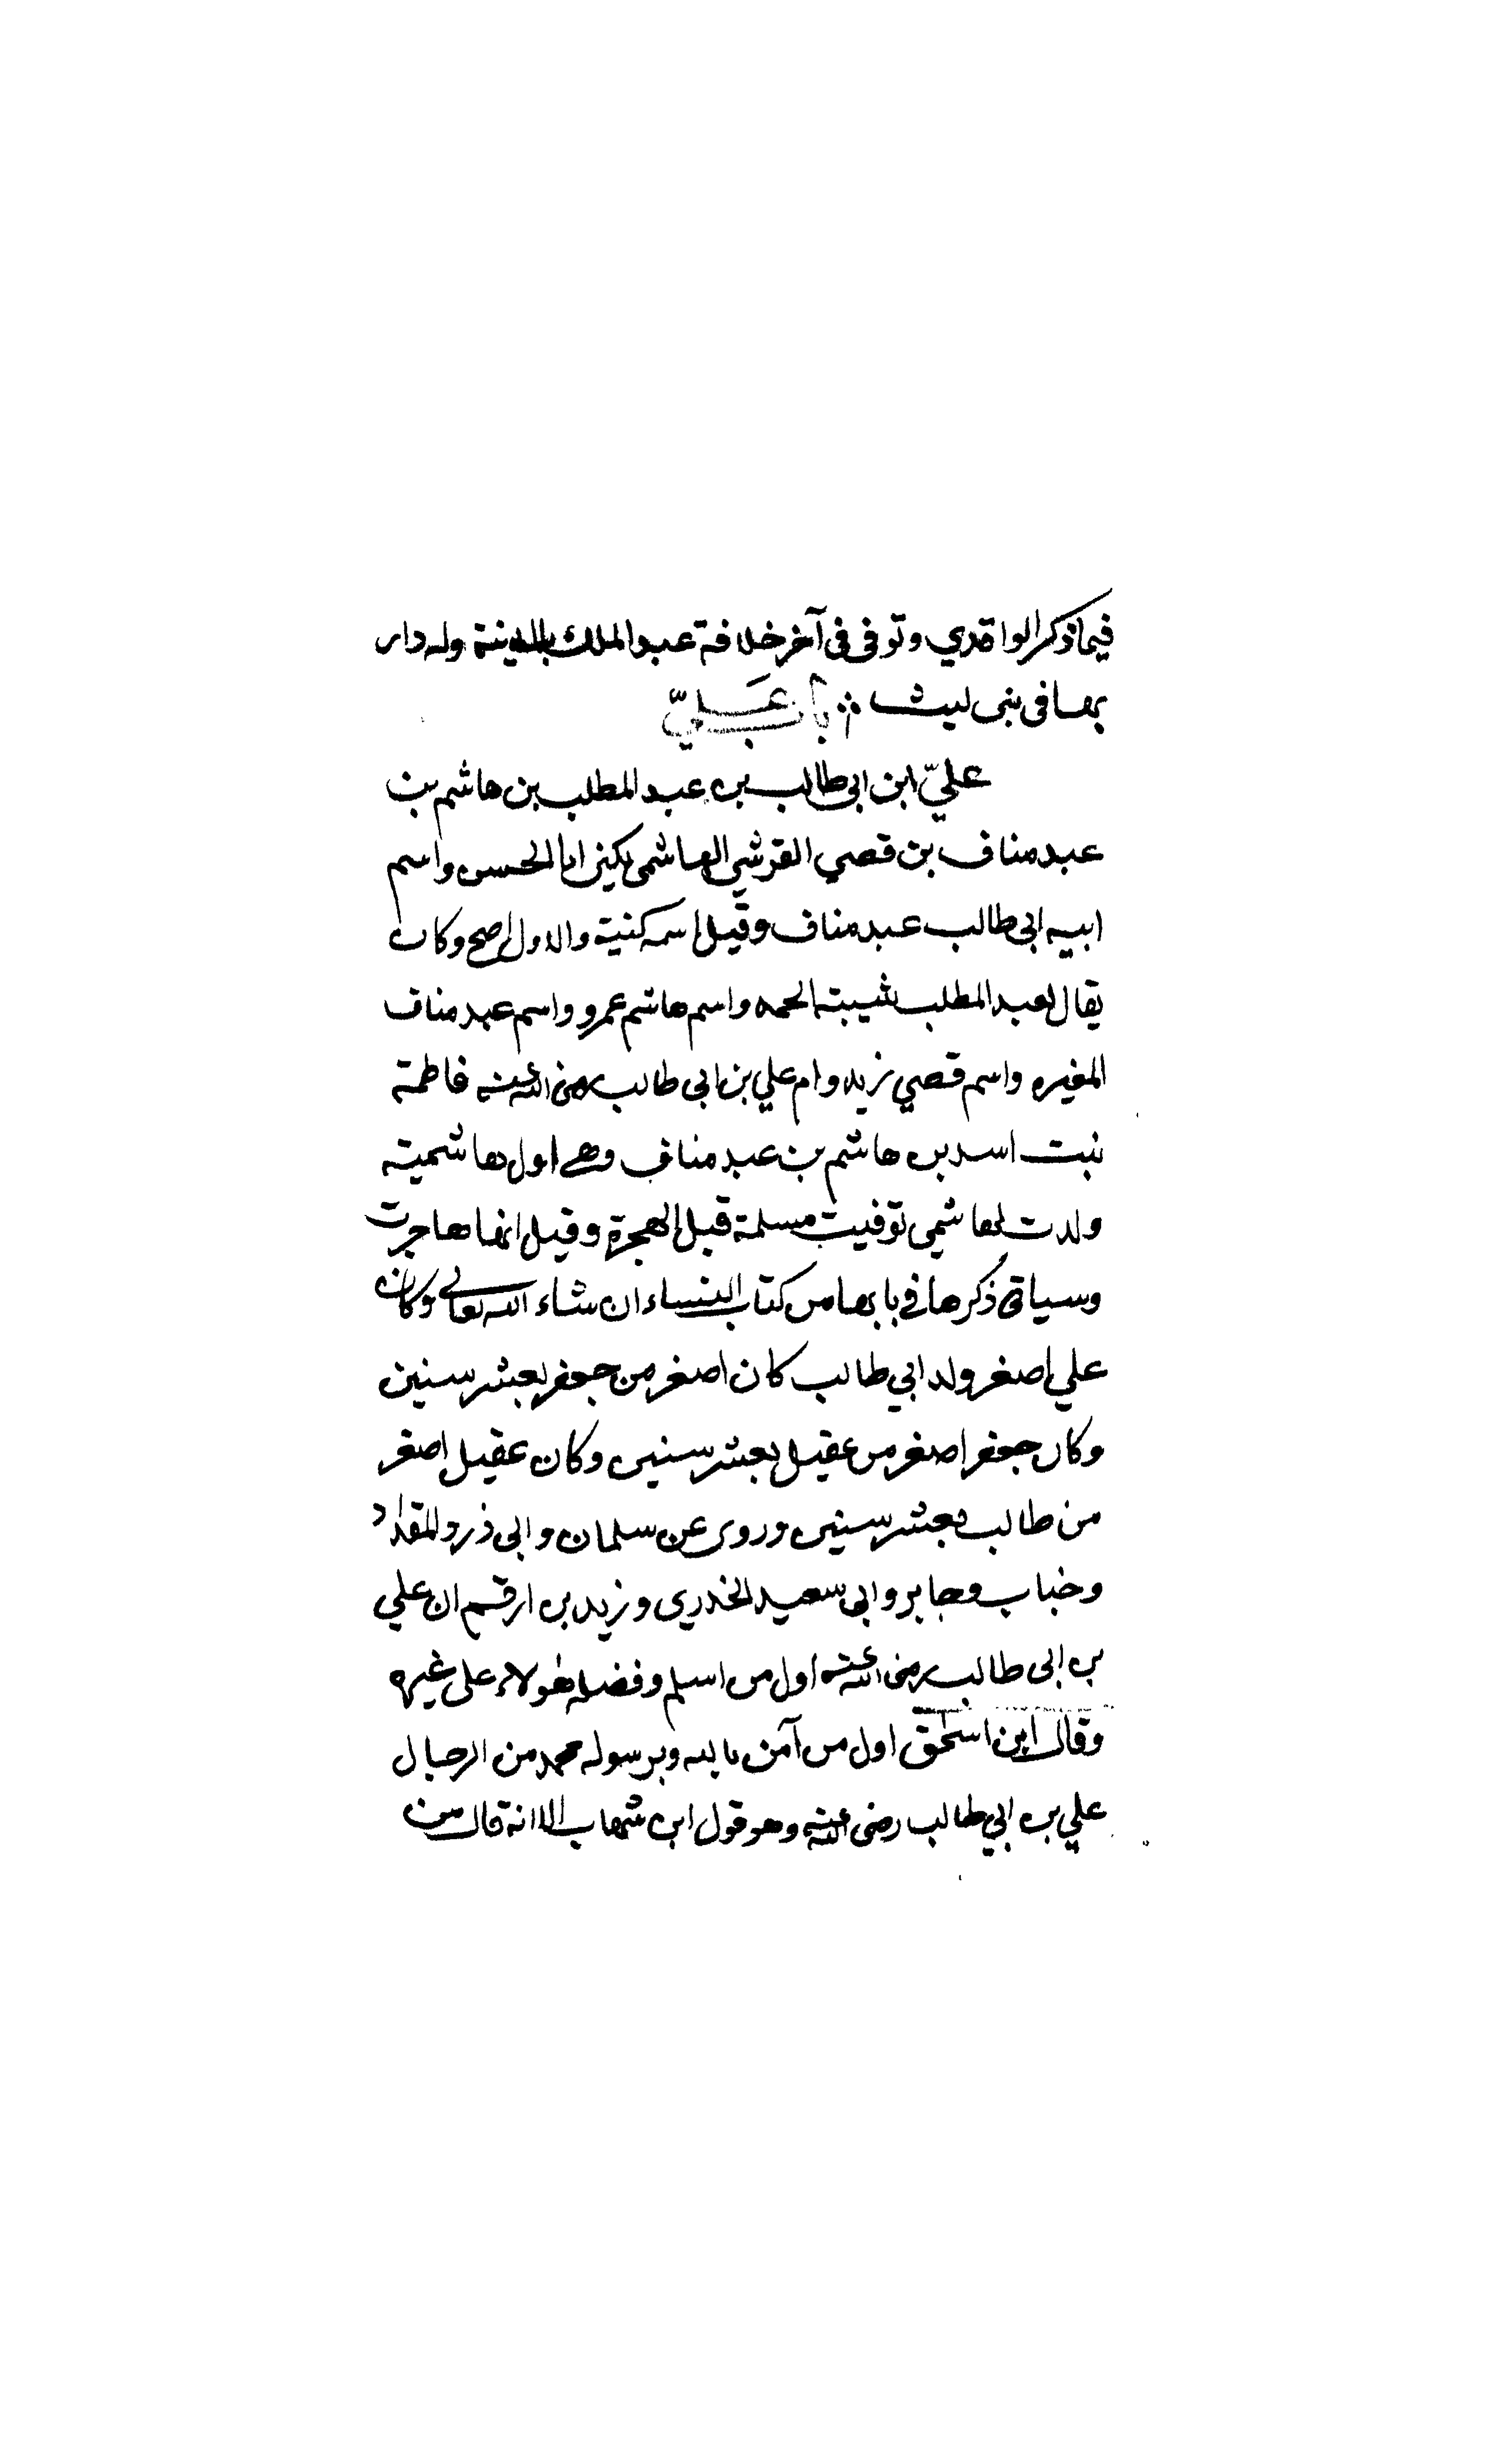 فيما ذكر الواقدي وتوفى فى آخر خلافة عبد الملك بالمدينة وله دار
بها فى بنى ليث ؞ باب عَليّ
عليّ ابن ابى طالب بن عبد المطلب بن هاشم بن
عبد مناف بن قصي القرشي الهاشمى يكنى ابا الحسن واسم
ابيه ابى طالب عبد مناف وقيل اسمه كنيته والاول اصح وكان
يقال لعبد المطلب شيبة الحمد واسم هاشم عمرو واسم عبد مناف
المغيره واسم قصي زيد وام علي بن ابى طالب رضى الله عنه فاطمة
بنت اسد بن هاشم بن عبد مناف وهى اول هاشمية
ولدت لهاشمى توفيت مسلمة قبل الهجرة وقيل انها هاجرت
وسياتى ذكرها فى بابها من كتاب النساء ان شاء الله تعالى وكان
علي اصغر ولد ابي طالب كان اصغر من جعفر بعشر سنين
وكان جعفر اصغر من عقيل بعشر سنين وكان عقيل اصغر
من طالب بعشر سنين وروى عن سلمان وابى ذر والمقداد
وخباب وجابر وابى سعيد الخدرى وزيد بن ارقم ان علي
بن ابى طالب رضى الله عنه اول من اسلم وفضله هولاء على غيره
وقال ابن اسحق اول من آمن بالله وبرسوله محمد من الرجال
علي بن ابي طالب رضى الله عنه وهو قول ابن شهاب الا انه قال من